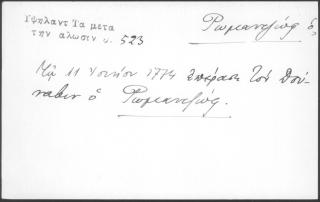 Ὑψηλαντ Τα μετα
την αλωσιν σ. 523
Ρωμαντζώφ ὁ
Τῇ 11 Ἰουνίου 1774 ἐπέρασε τὸν Δού-
ναβιν ὁ Ρωμαντζώφ.